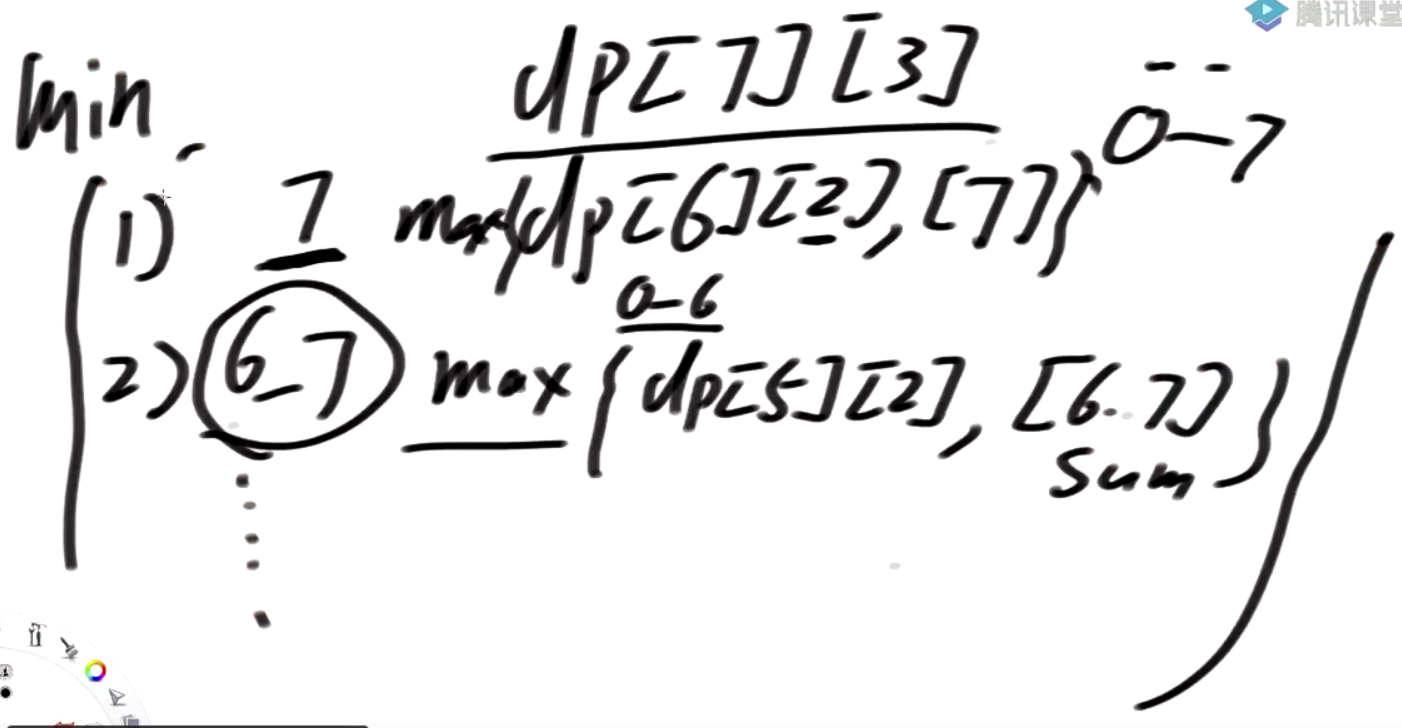 腾讯课堂
dp[7][3]
min
0-7
1) 7 max{dp[6][2], [7]}
0-6
2) 6-7 max{dp[5][2], [6..7]}
sum